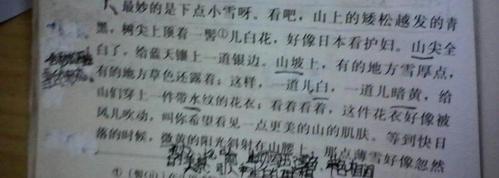 最妙的是下点小雪呀。看吧，山上的矮松越发的青
黑，树尖上顶着一髻①儿白花，好像日本看护妇。山尖全
白了，给蓝天镶上一道银边。山坡上，有的地方雪厚点，
有的地方草色还露着；这样，一道儿白，一道儿暗黄，给
山们穿上一件带水纹的花衣；看着看着，这件花衣好像被
风儿吹动，叫你希望看见一点更美的山的肌肤。等到快日
落的时候，微黄的阳光斜射在山腰上，那点薄雪好像忽然